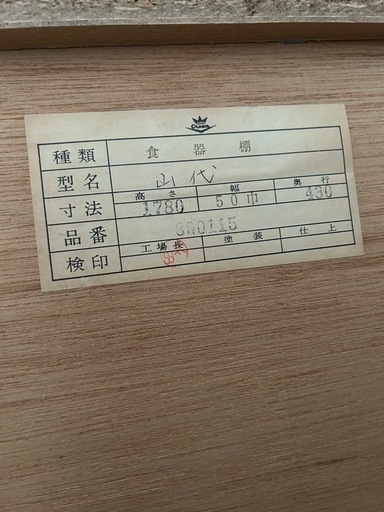 種類 食器棚
型名 山代
寸法 高さ 1780 幅 50巾 奥行 430
品番 800115
検印 工場長 塗装 仕上